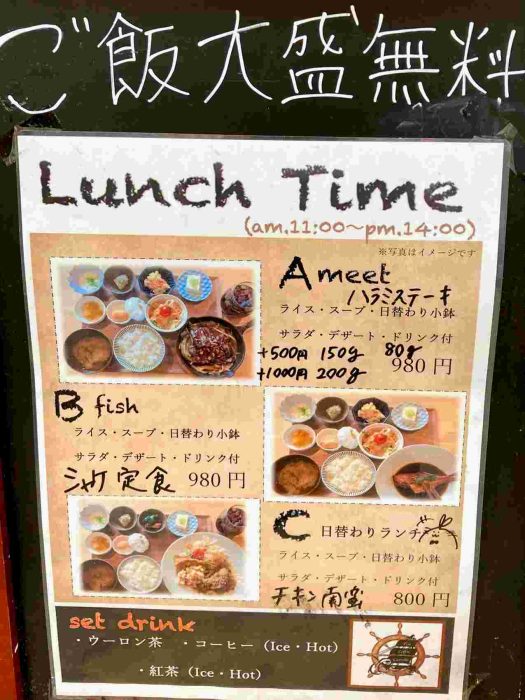 ご飯大盛無料
Lunch Time
(am.11:00～pm.14:00)
※写真はイメージです
A meet
ハラミステーキ
ライス・スープ・日替わり小鉢
サラダ・デザート・ドリンク付
+500円 150g 80g
+1000円 200g 980円
B fish
ライス・スープ・日替わり小鉢
サラダ・デザート・ドリンク付
シャケ定食 980円
C 日替わりランチ
ライス・スープ・日替わり小鉢
サラダ・デザート・ドリンク付
チキン南蛮 800円
set drink
・ウーロン茶 ・コーヒー（Ice・Hot）
・紅茶（Ice・Hot）